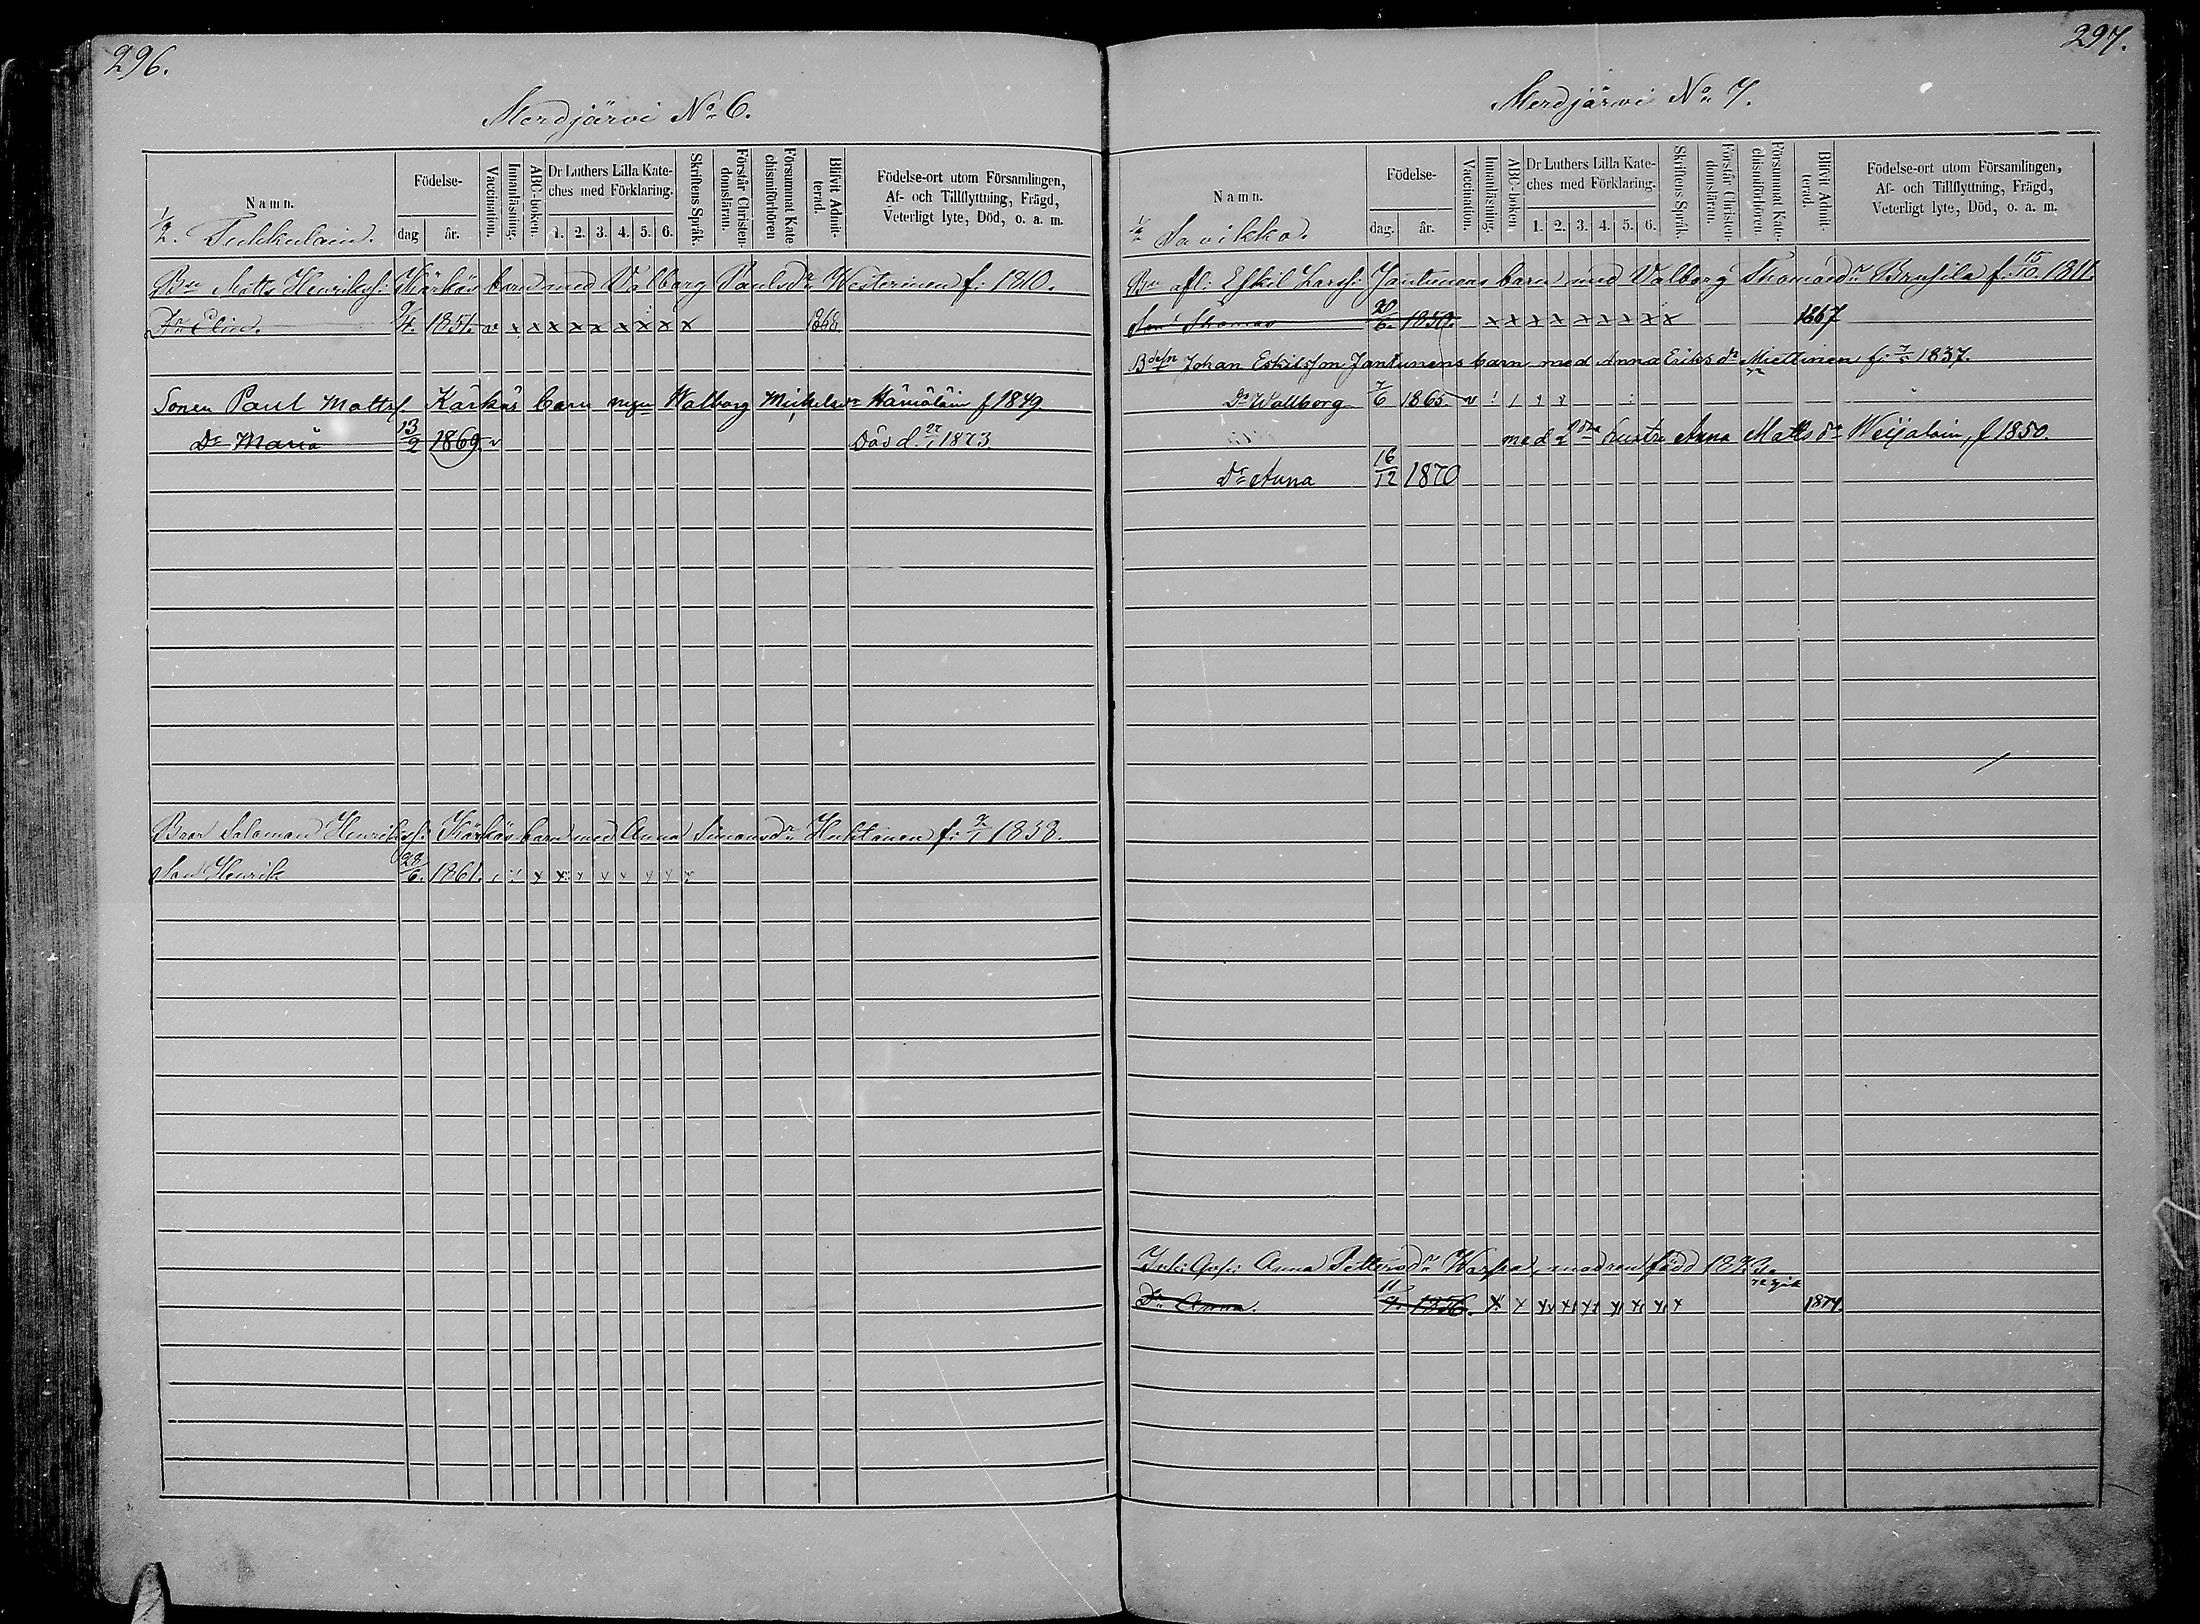 296.
Merdjärvi No 6.
Namn.
Födelse-
dag
år.
Vaccination.
Innanläsning.
ABC-boken.
Dr Luthers Lilla Kate-
ches med Förklaring.
1. 2. 3. 4. 5. 6.
Skriftens Språk.
Förstår Christen-
domsläran.
Försummat Kate
chismiförhören
Blifvit Admit-
terad.
Födelse-ort utom Församlingen,
Af- och Tillflyttning, Frägd,
Veterligt lyte, Död, o. a. m.
1/2. Tukkulain.
Bdn Matts Henrikss: Kärkäs barn med Valborg Paulsdr Westerinen f: 1810.
Dr Elin. 9/4. 1851. v x x x x x x x x x 1868
Sonen Paul Mattss. Kärkäs barn med Walborg Mickelsdr Hämäläin f 1849.
Dr Maria 13/2 1869. v Död d. 27/1 1873.
Bror Salomon Henrikss: Kärkäs barn med Anna Simonsdr Huhtanen f: 1838.
Son Henrik 28/6. 1861. x x x x x x x x
297.
Merdjärvi No 7.
Namn.
Födelse-
dag.
år.
Vaccination.
Innanläsning.
ABC-boken.
Dr Luthers Lilla Kate-
ches med Förklaring.
1. 2. 3. 4. 5. 6.
Skriftens Språk.
Förstår Christen-
domsläran.
Försummat Kate-
chismiförhören.
Blifvit Admit-
terad.
Födelse-ort utom Församlingen,
Af- och Tillflyttning, Frägd,
Veterligt lyte, Död, o. a. m.
Savikko.
Bdn afl: Eskil Larss: Jantunens barn med Valborg Thomasdr Brusila f: 15/10. 1811.
Son Thomas 20/6. 1850. x x x x x x x x x 1867
Johan Eskilsson Jantunens barn med Anna Eriksdr Miettinen f: 1837.
Dr Wallborg 7/6 1865 v
med 2dra hustr Anna Mattsdr Weijalain, f 1850.
Dr Anna 16/12 1870
Inh: Anna Pettersdr Warpa, modren född
Dr Anna. 11/9. 1856. x x x x x x x x x 1874